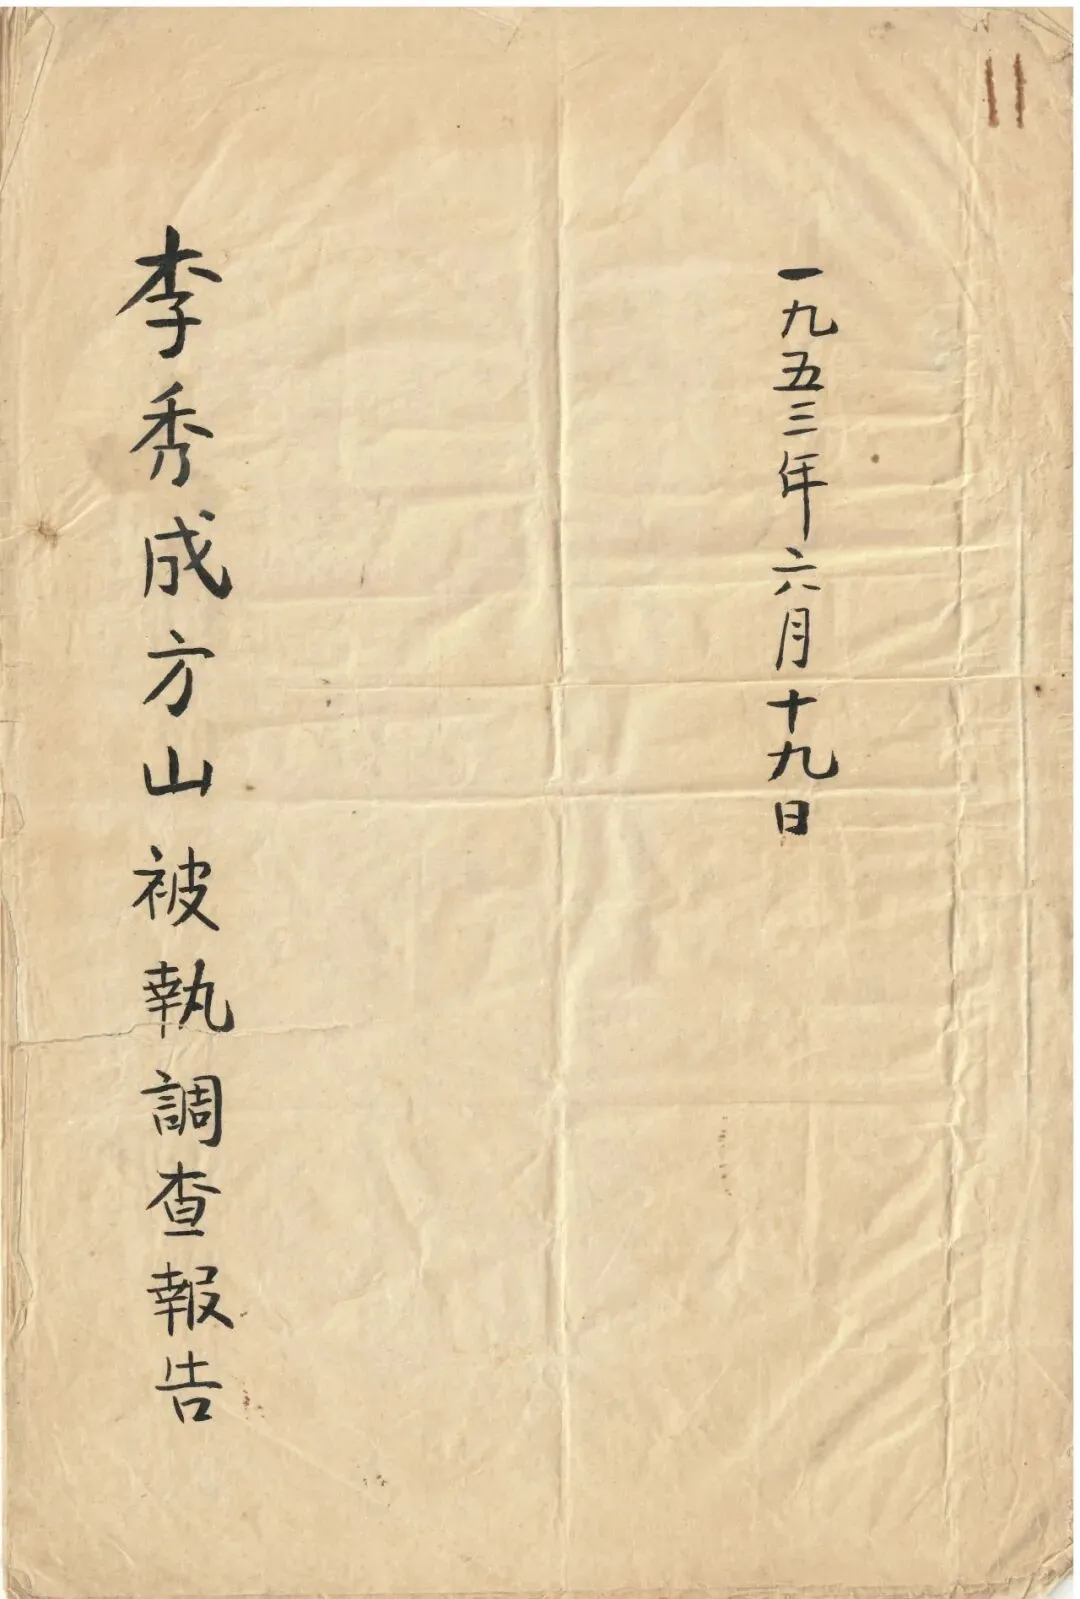 11
一九五三年六月十九日
李秀成方山被執調查報告